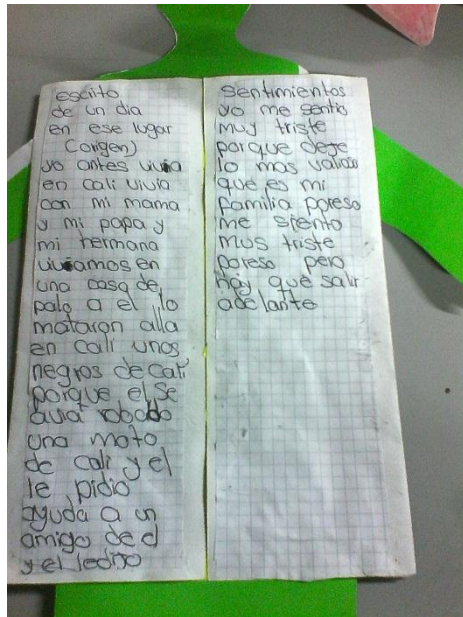 escrito
de un dia
en ese lugar
(origen)
yo antes vivia
en cali vivia
con mi mama
y mi papa y
mi hermana
viviamos en
una casa de
palo a el lo
mataron alla
en Cali unos
negros de Cali
porque el se
avia robado
una moto
de cali y el
le pidio
ayuda a un
amigo de el
y el ledijo
Sentimientos
yo me sentia
muy triste
porque deje
lo mas valioso
que es mi
familia poreso
me siento
muy triste
poreso pero
hay que salir
adelante